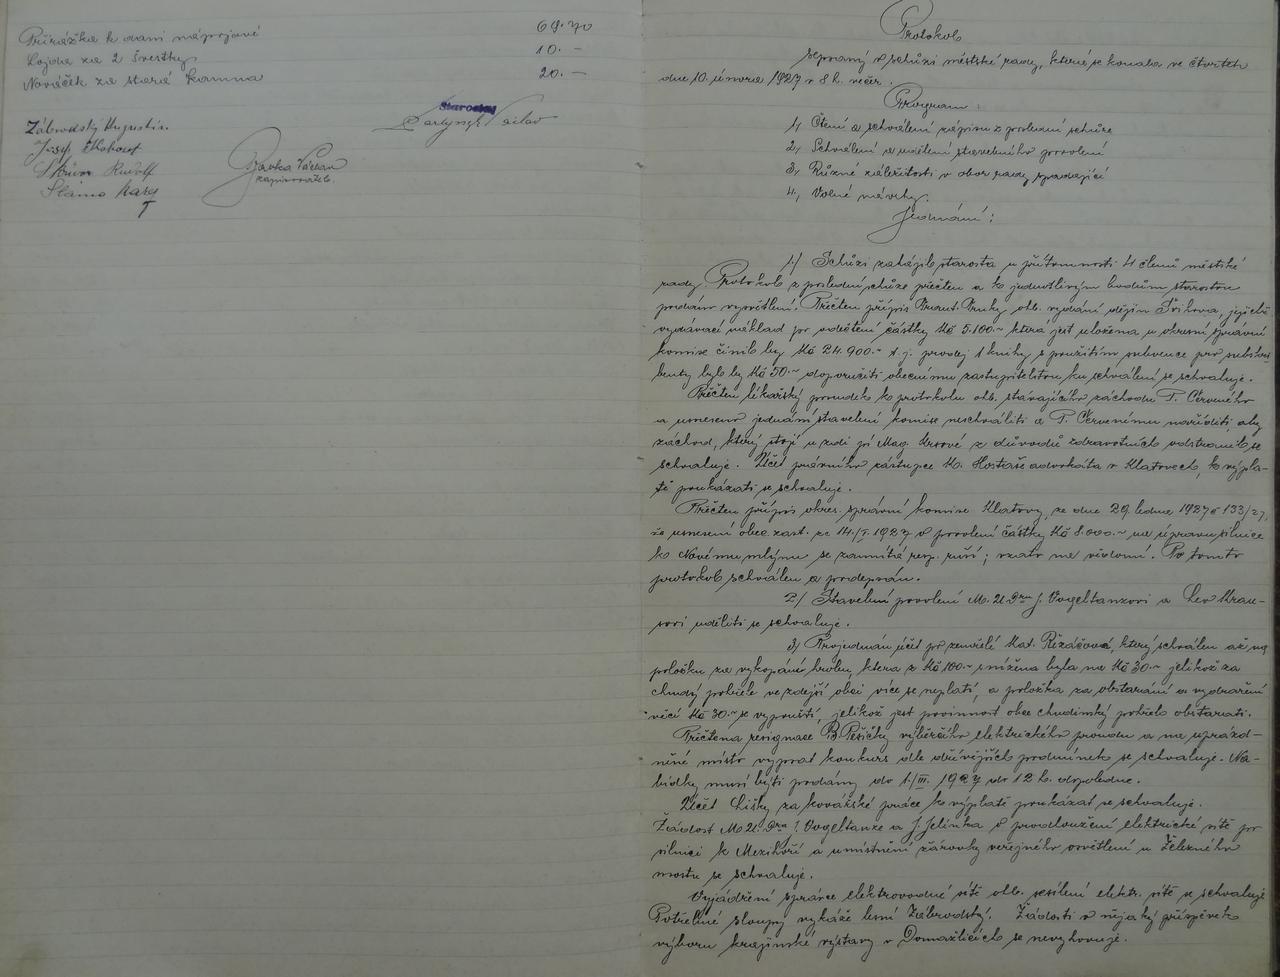 Přirážka k dani nápojové 69.70
Lojda za 2 švestky 10.-
Nováček za stará kamna 20.-
Starosta
Zábrodský Augustin.
Josef Kohout
Rudolf
Sláma Karel
Václav
zapisovatel.
Protokol
sepsaný o schůzi městské rady, která se konala ve čtvrtek
dne 10. února 1927 v 8 h. večer.
Program:
1, Čtení a schválení zápisu z poslední schůze
2, Schválení a udělení stavebního povolení
3, Různé záležitosti v obor rady spadající
4, Volné návrhy.
Jednání:
1/ Schůzi zahájil starosta u přítomnosti 4 členů městské
rady. Protokol z poslední schůze přečten a k jednotlivým bodům starostou
podáno vysvětlení. Přečten přípis Frant. ohl. vydání dějin Švihova, jejichž
vydávací náklad po odečtení částky Kč 5.100.- která jest uložena u okresní správní
komise činil by Kč 24.900.- t.j. prodej 1 knihy s použitím subvence pro subskri-
benty byl by Kč 50.- doporučiti obecnímu zastupitelstvu ku schválení se schvaluje.
Přečten lékařský posudek k protokolu ohl. stavajícího záchodu T. Červeného
a usneseno jednání stavební komise neschváliti a T. Červenému naříditi, aby
záchod, který stojí u zdi při Mag. z důvodů zdravotních odstranil se
schvaluje. Účet právního zástupce Kl. Hostaše advokáta v Klatovech, k výpla-
tě poukázati se schvaluje.
Přečten přípis okres. správní komise Klatovy, ze dne 29. ledna 1927 č 133/27,
že usnesení obec. zast. ze 14./I. 1927 o povolení částky Kč 8.000.- na úpravu silnice
ko Novému mlýnu se zamítá resp. ruší; vzato na vědomí. Po tomto
protokol schválen a podepsán.
2./ Stavební povolení M.U.Dru J. Vogeltanzovi a Leo Krau-
sovi uděliti se schvaluje.
3, Projednán účet po zemřelé Kat. Řezáčové, který schválen až na
položku za vykopání hrobu, která z Kč 100.- snížena byla na Kč 30.- jelikož za
chudý pohřeb ve zdejší obci více se neplatí, a položka za obstarání a vydražení
věcí Kč 30.- se vypouští, jelikož jest povinnost obce chudinský pohřeb obstarati.
Přečtena resignace B. Pešičky výběrčího elektrického proudu a na upráz-
něné místo vypsat konkurs dle dřívějších podmínek se schvaluje. Na-
bídky musí býti podány do 1./III. 1927 do 12 h. dopoledne.
Účet Lišky za kovářské práce k výplatě poukázat se schvaluje.
Žádost M.U.Dra J. Vogeltanze a J. Jelínka o prodloužení elektrické sítě po
silnici k Mezihoří a umístnění žárovky veřejného osvětlení u Železného
mostu se schvaluje.
Vyjádření správce elektrovodné sítě ohl. sesílení elektr. sítě se schvaluje
Potřebné sloupy vykáže lesní Zábrodský. Žádosti o nějaký příspěvek
výboru krajinské výstavy v Domažlicích se nevyhovuje.